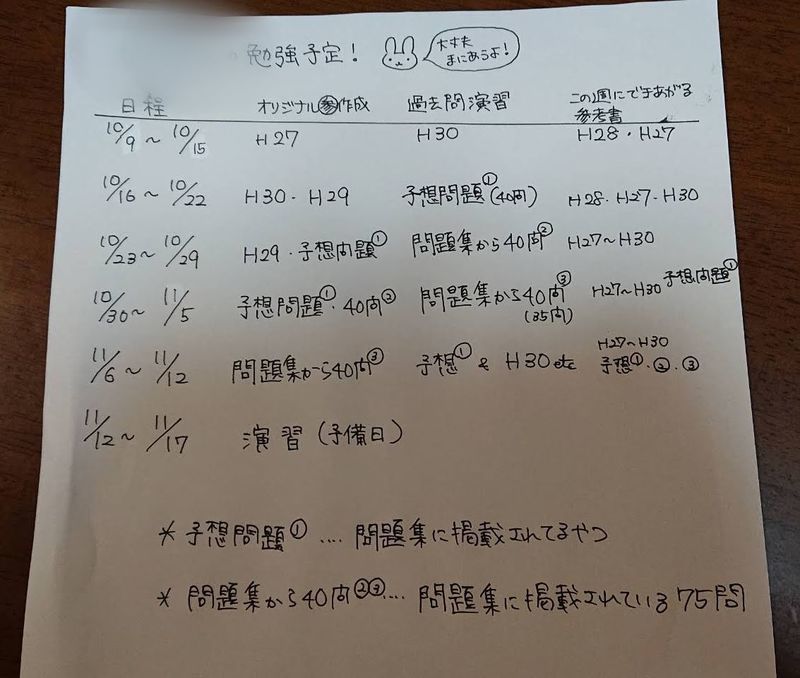 勉強予定!
大丈夫
まにあうよ!
日程 オリジナル㊂作成 過去問演習 この週にできあがる
参考書
10/9~10/15 H27 H30 H28・H27
10/16~10/22 H30・H29 予想問題①(40問) H28・H27・H30
10/23~10/29 H29・予想問題① 問題集から40問② H27~H30
10/30~11/5 予想問題①・40問② 問題集から40問③ H27~H30 予想問題①
(35問)
11/6~11/12 問題集から40問③ 予想① & H30 etc H27~H30
予想①・②・③
11/12~11/17 演習(予備日)
* 予想問題① .... 問題集に掲載されてるやつ
* 問題集から40問②③.... 問題集に掲載されている75問